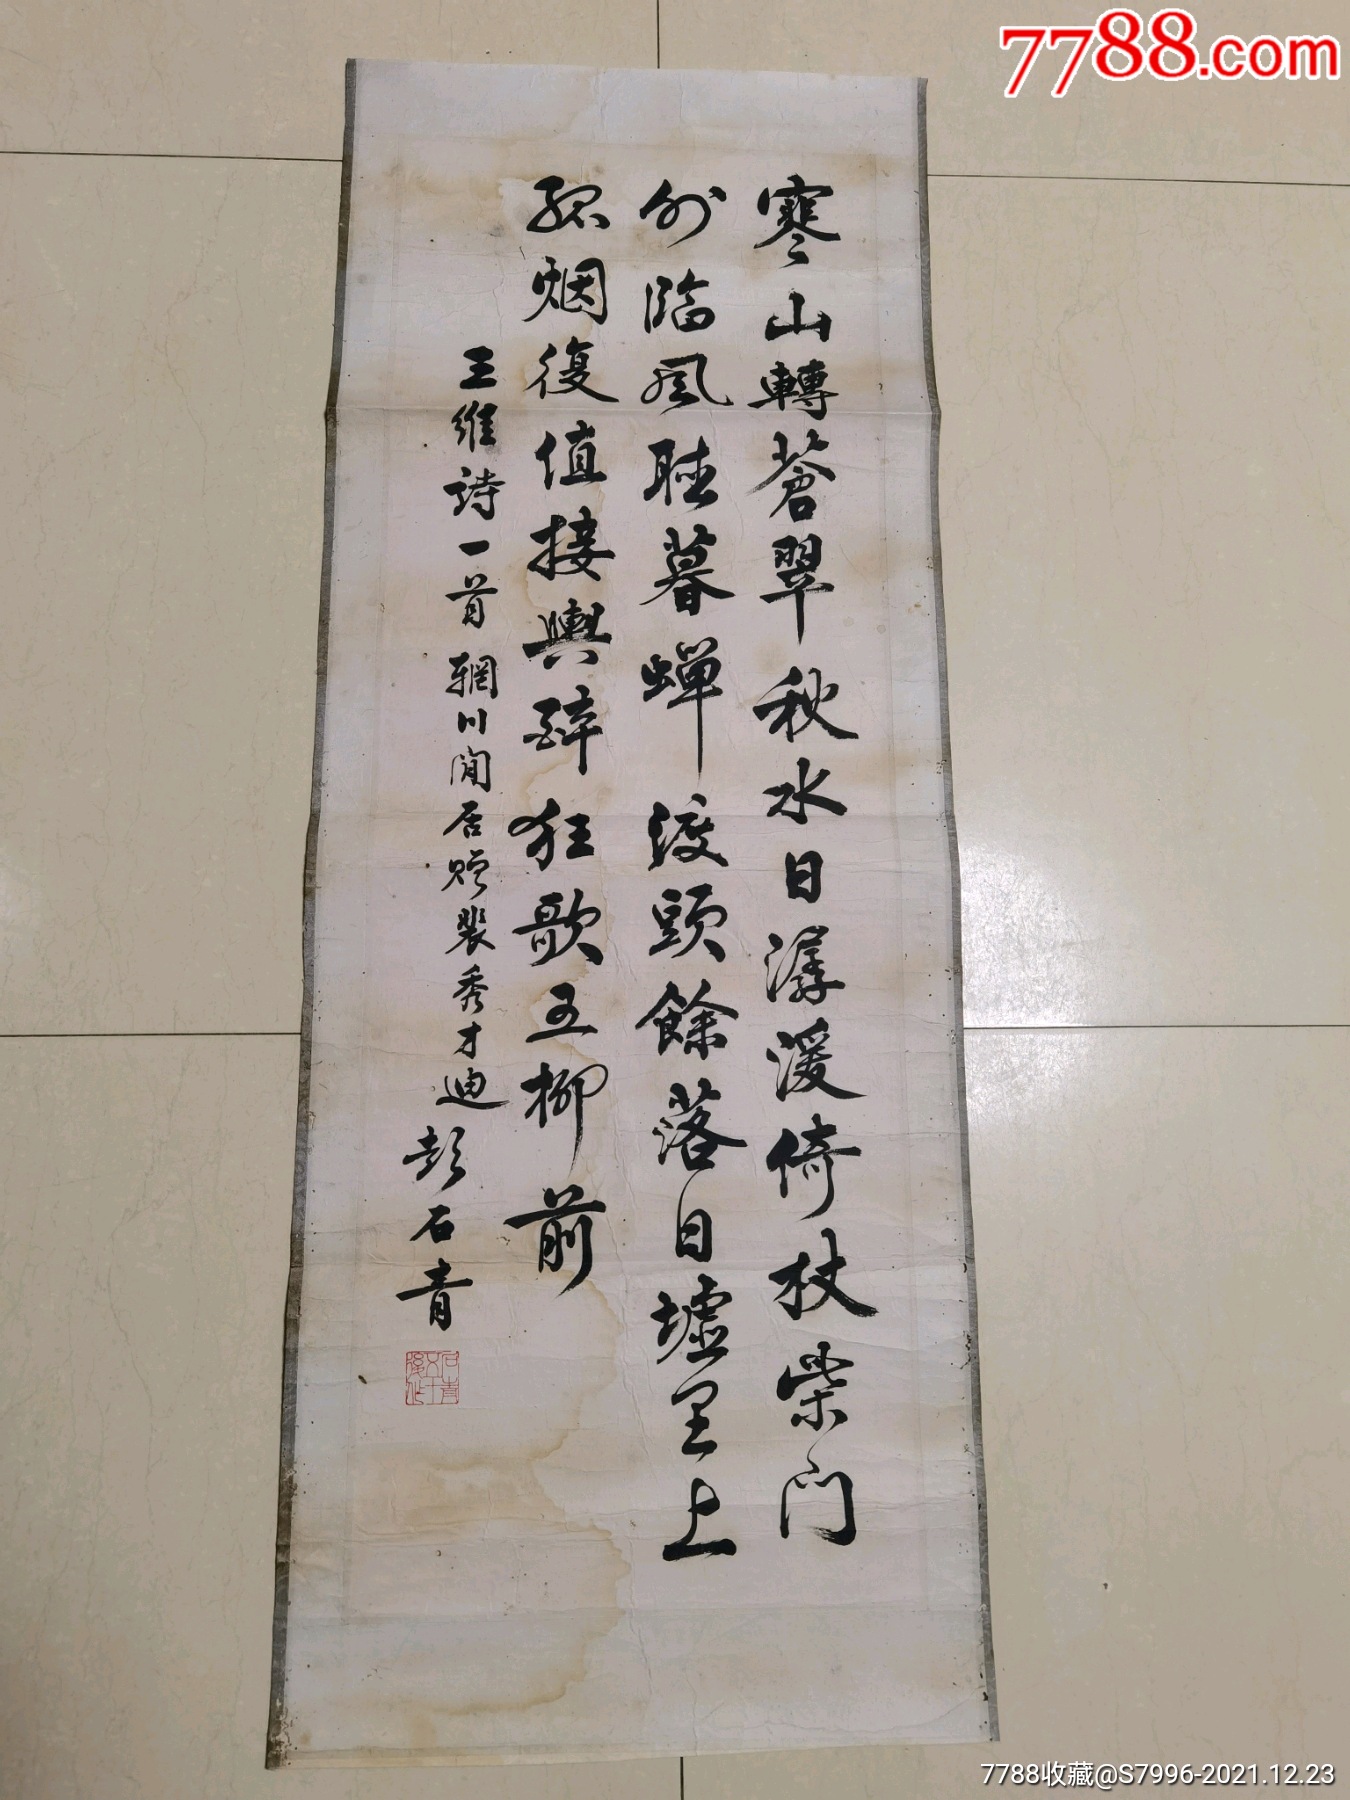 7788.com
寒山轉蒼翠秋水日潺湲倚杖柴門
外臨風聴暮蝉渡頭餘落日墟里上
孤烟復值接輿醉狂歌五柳前
王維詩一首 輞川閒居贈裴秀才迪 彭石青
7788收藏@S7996-2021.12.23